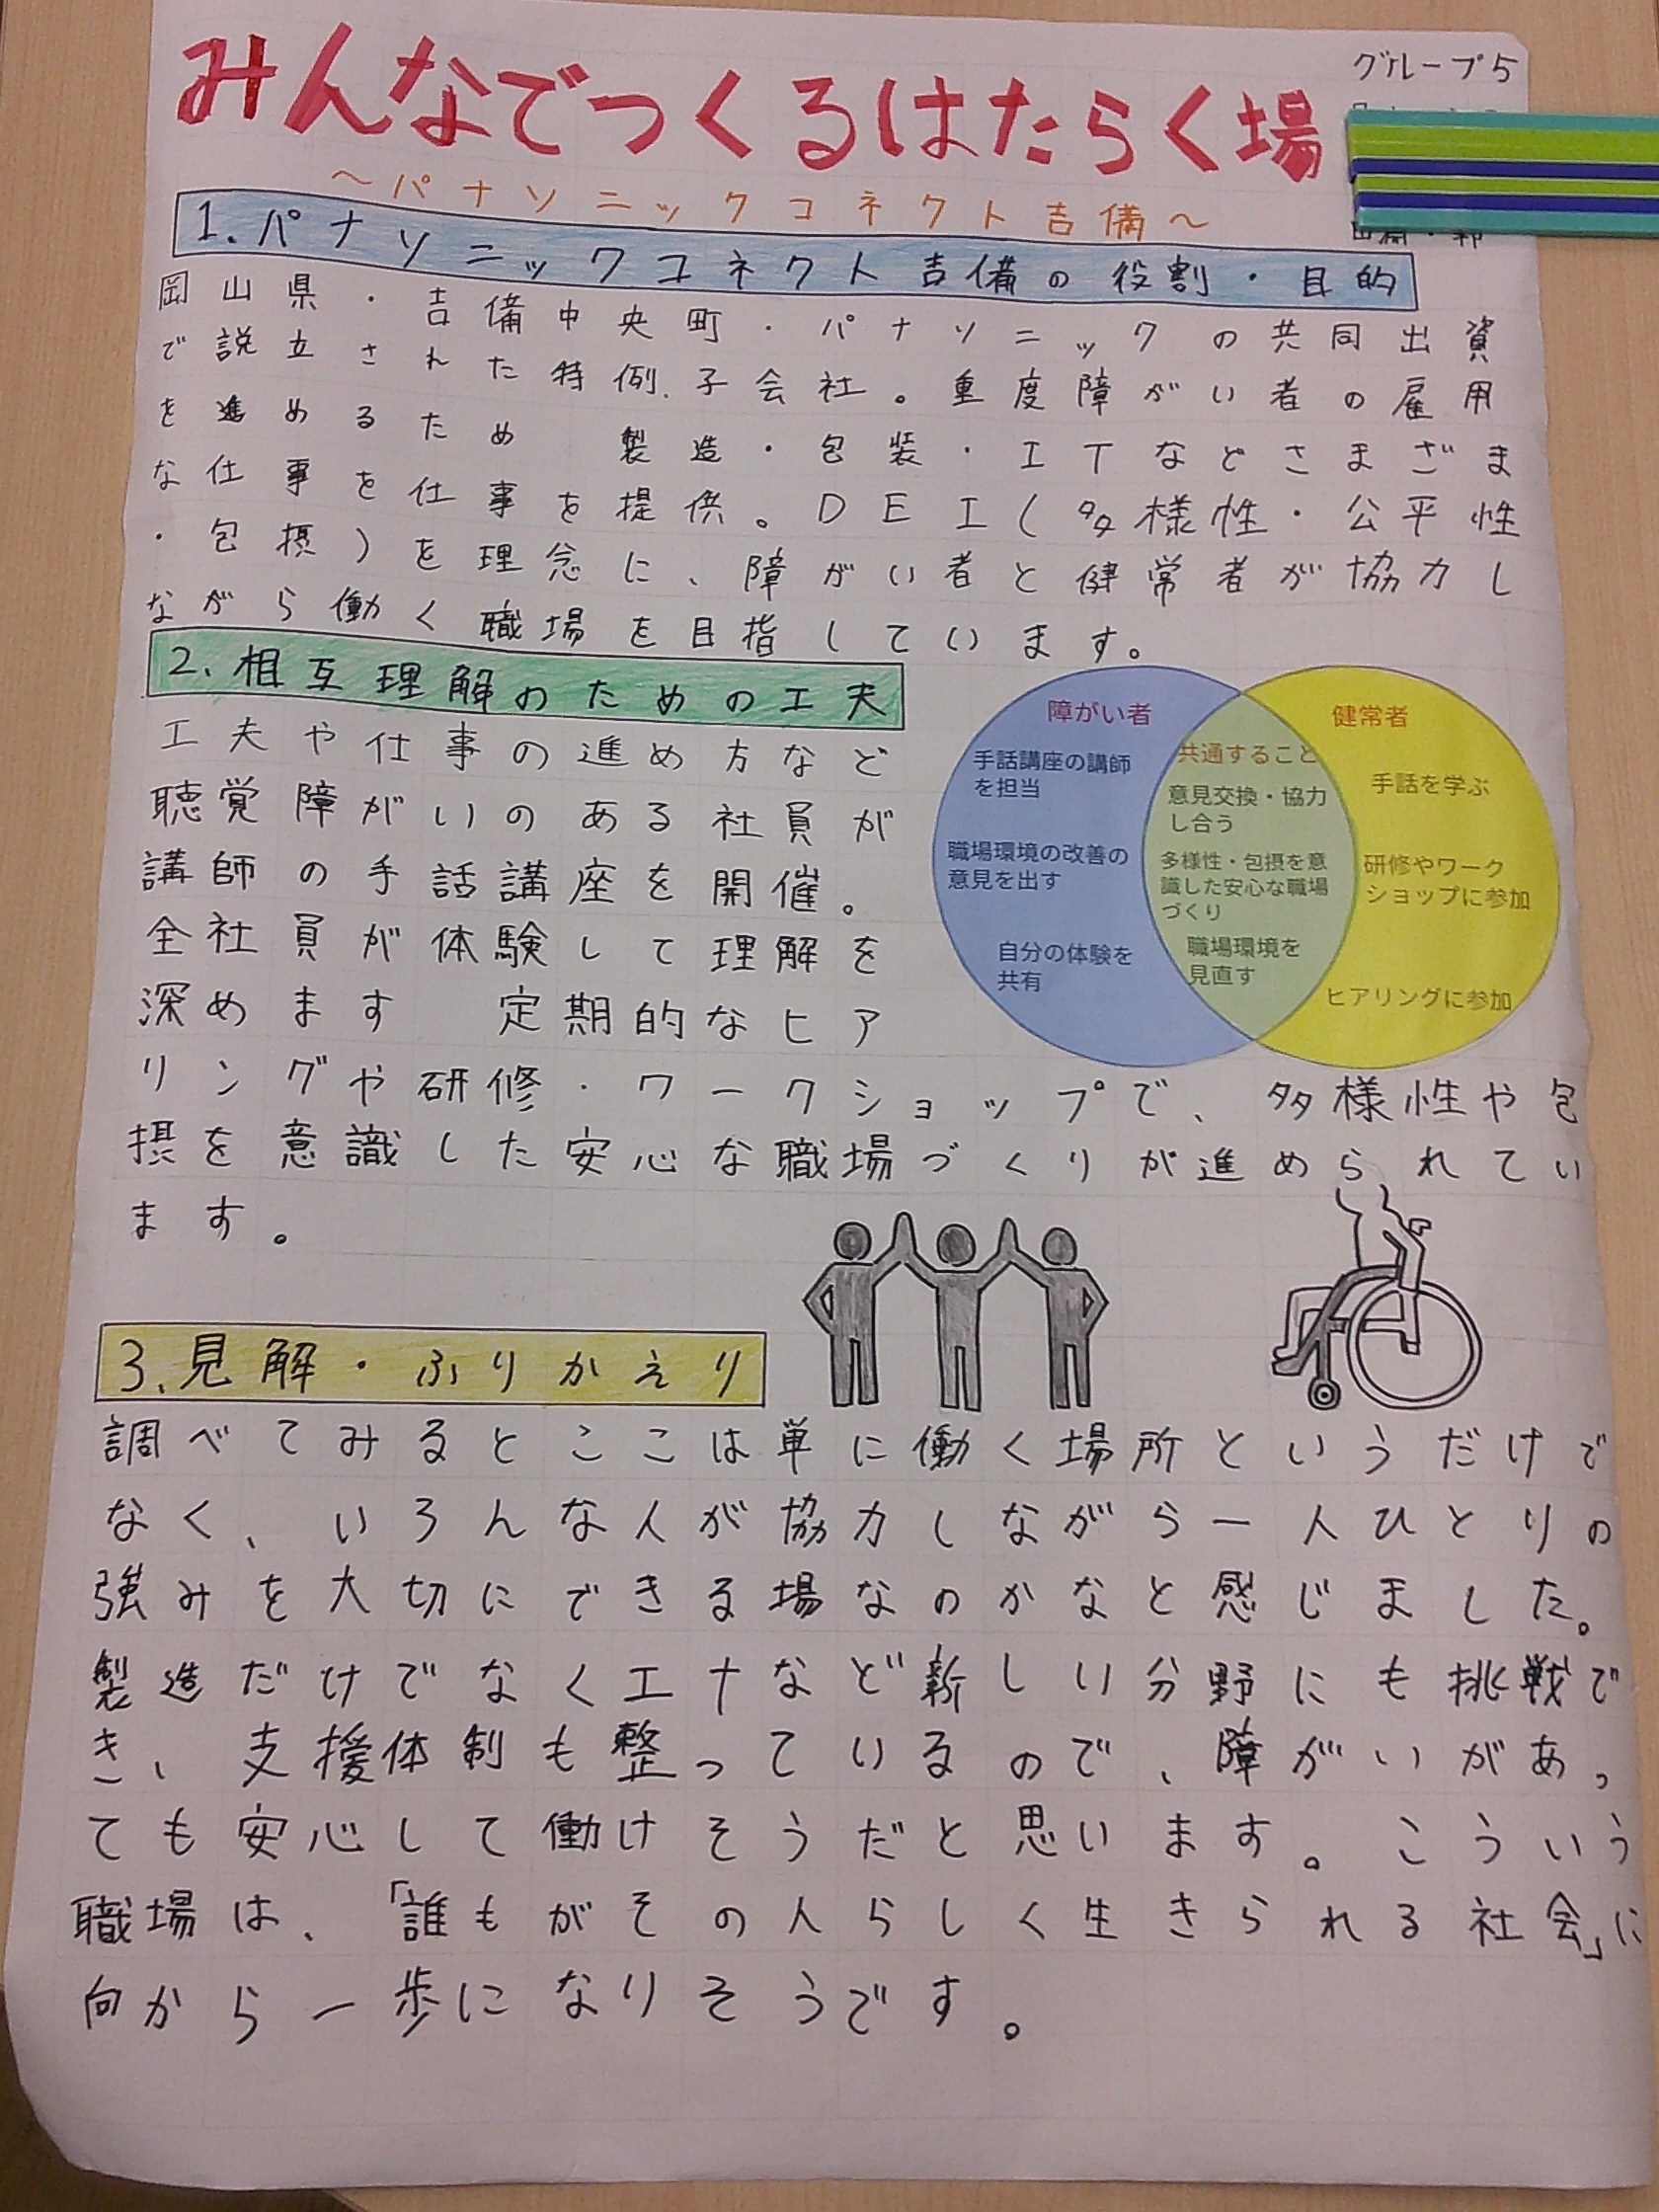 みんなでつくるはたらく場
グループ5
～パナソニックコネクト吉備～
1.パナソニックコネクト吉備の役割・目的
岡山県・吉備中央町・パナソニックの共同出資
で説立された特例子会社。重度障がい者の雇用
を進めるため 製造・包装・ITなどさまざま
な仕事を仕事を提供。DEI(多様性・公平性
・包摂)を理念に、障がい者と健常者が協力し
ながら働く職場を目指しています。
2.相互理解のための工夫
工夫や仕事の進め方など
聴覚障がいのある社員が
講師の手話講座を開催。
全社員が体験して理解を
深めます 定期的なヒア
リングや研修・ワークショップで、多様性や包
摂を意識した安心な職場づくりが進められてい
ます。
障がい者
手話講座の講師
を担当
職場環境の改善の
意見を出す
自分の体験を
共有
共通すること
意見交換・協力
し合う
多様性・包摂を意
識した安心な職場
づくり
職場環境を
見直す
健常者
手話を学ぶ
研修やワーク
ショップに参加
ヒアリングに参加
3.見解・ふりかえり
調べてみるとここは単に働く場所というだけで
なく、いろんな人が協力しながら一人ひとりの
強みを大切にできる場なのかなと感じました。
製造だけでなくITなど新しい分野にも挑戦で
き、支援体制も整っているので、障がいがあっ
ても安心して働けそうだと思います。こういう
職場は、「誰もがその人らしく生きられる社会」に
向から一歩になりそうです。